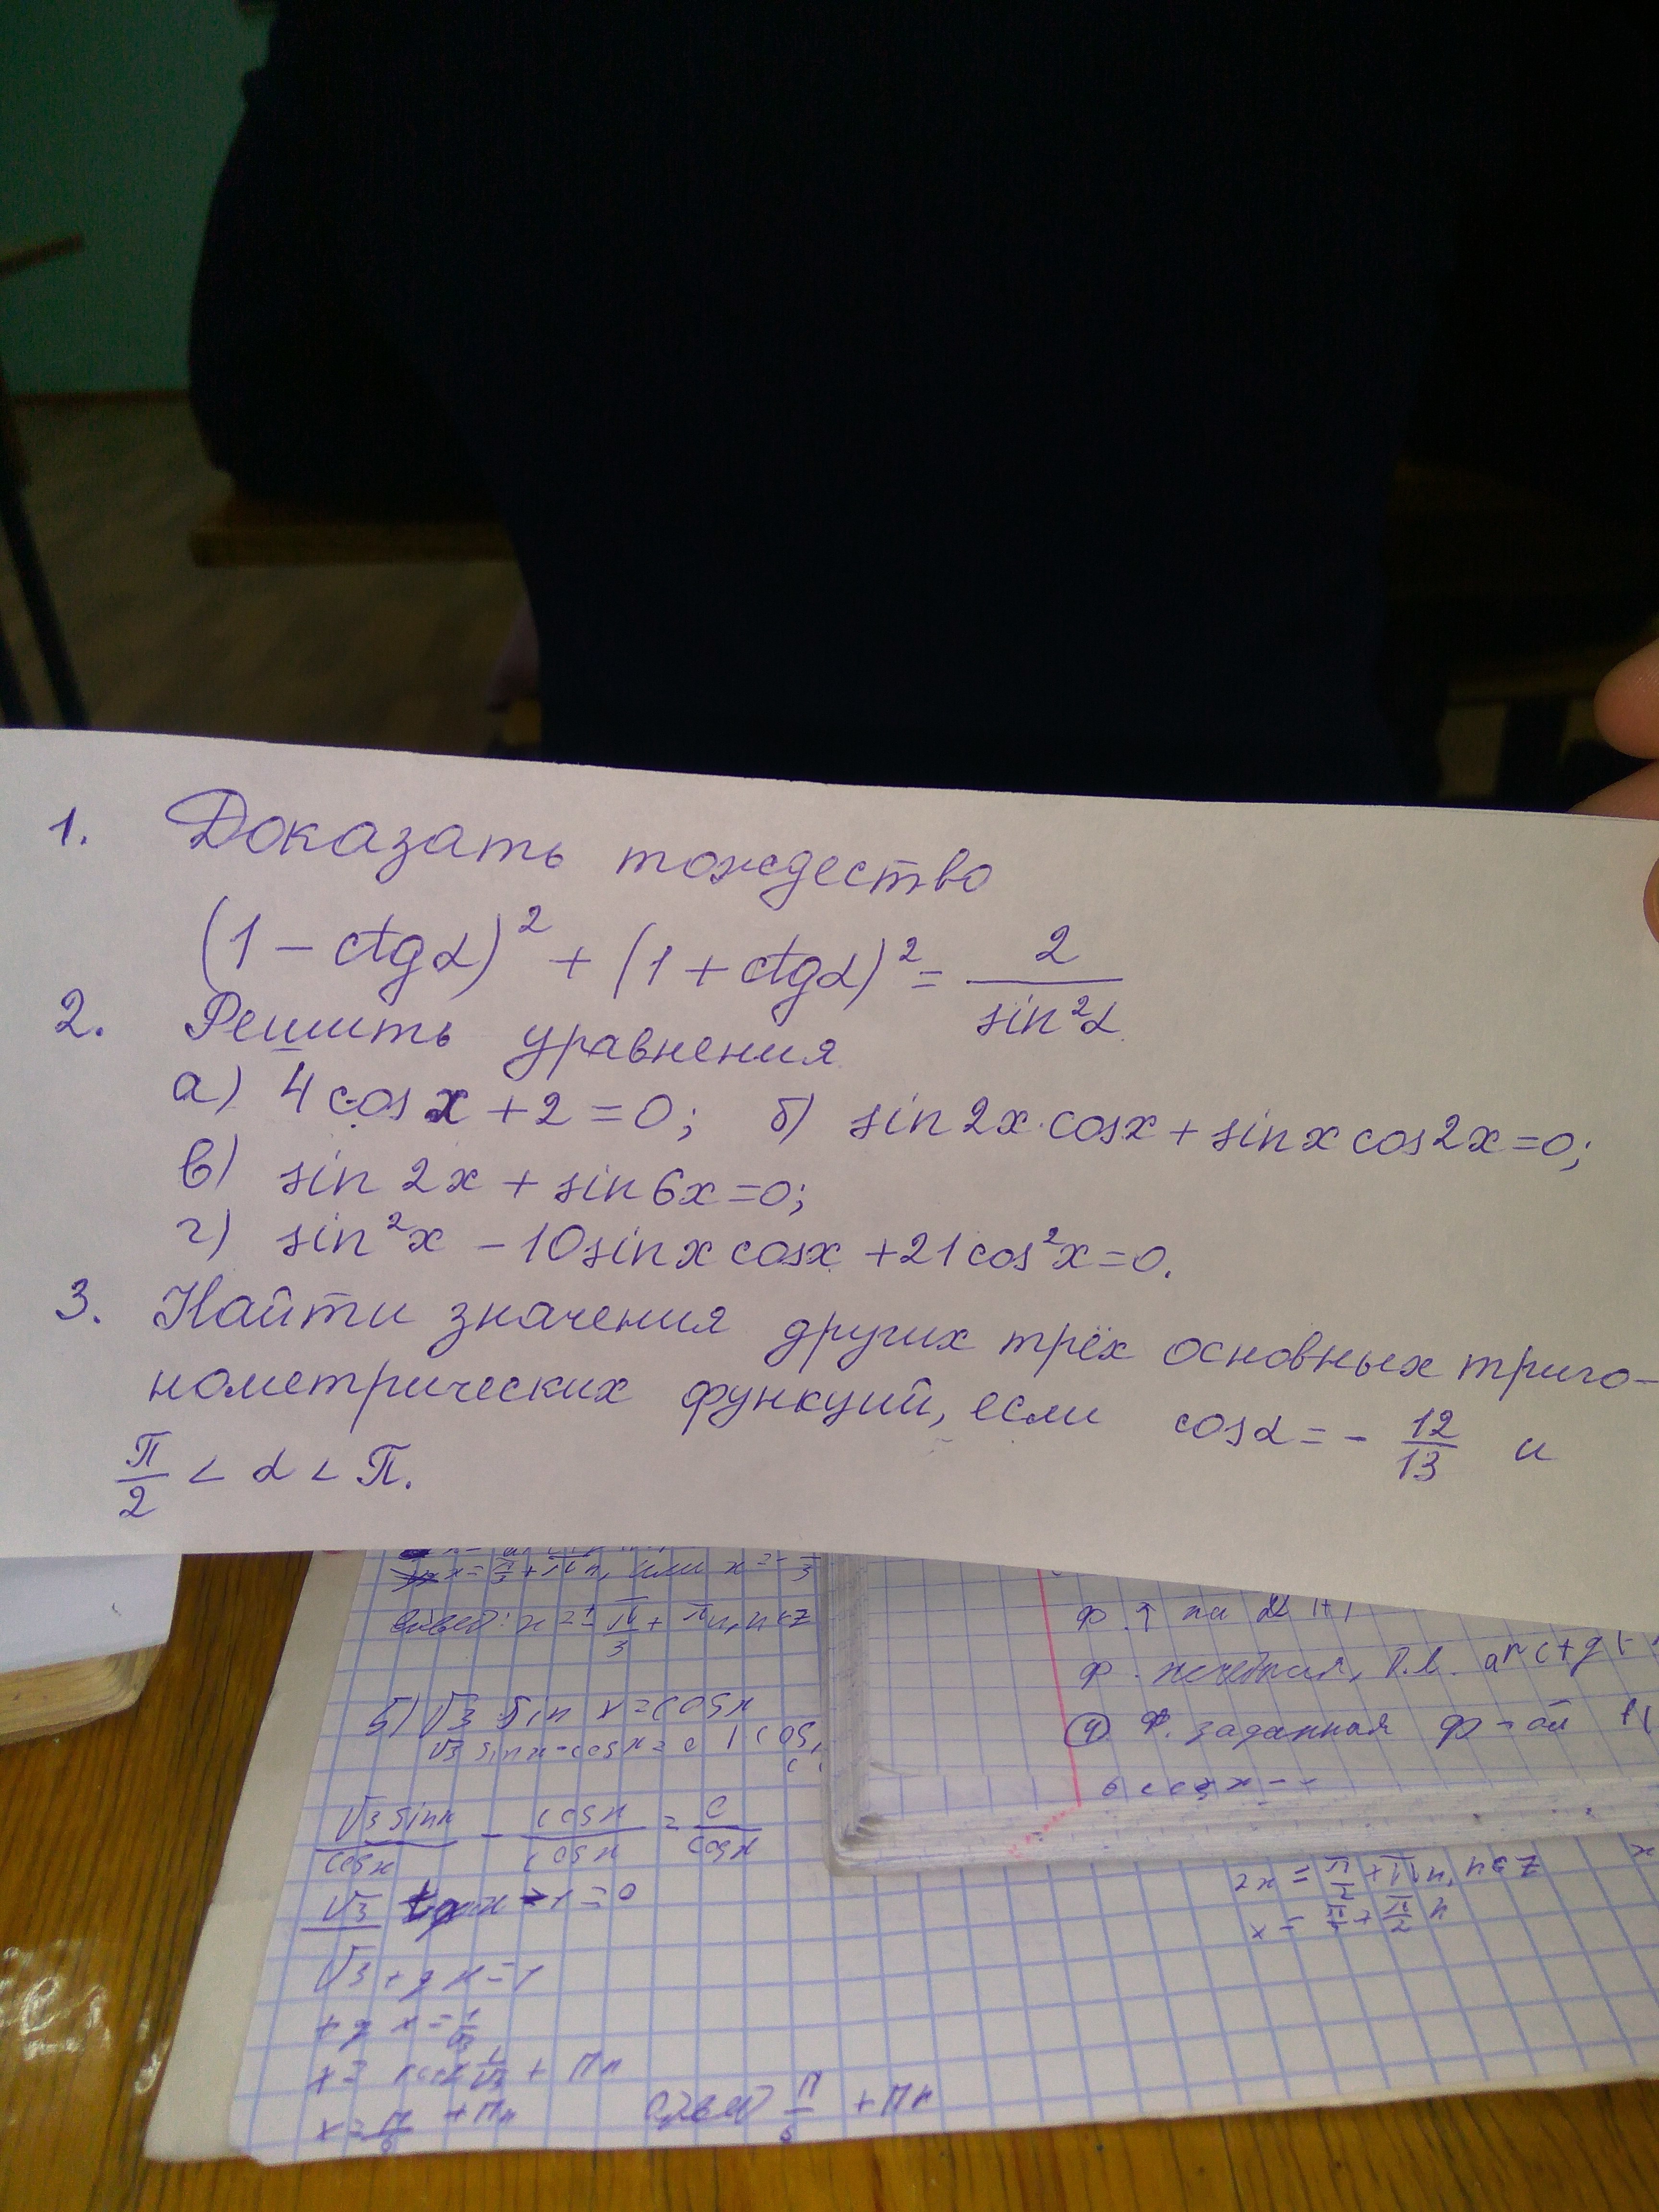 1. Доказать тождество
(1 - ctgα)² + (1 + ctgα)² = 2/sin²α
2. Решить уравнения
а) 4cos x + 2 = 0; б) sin2x·cosx + sinx cos2x = 0;
в) sin 2x + sin 6x = 0;
г) sin²x - 10sinx cosx + 21cos²x = 0.
3. Найти значения других трёх основных триго-
нометрических функций, если cosα = - 12/13 и
π/2 < α < π.
или x = -
Ответ: x = ± π/3 + πn, n ∈ Z
б) √3 sin x = cosx
√3 sinx - cosx = 0
√3 sinx/cosx - cosx/cosx = 0/cosx
√3 tgx - 1 = 0
√3 tg x = 1
tg x = 1/√3
x = π/6 + πn
Ответ π/6 + πn
ф. ↑ на
ф. нечетная, т.в. arcctg
④ Ф. заданная ф-ой
2x = π/2 + πn, n ∈ Z
x = π/4 + π/2 n